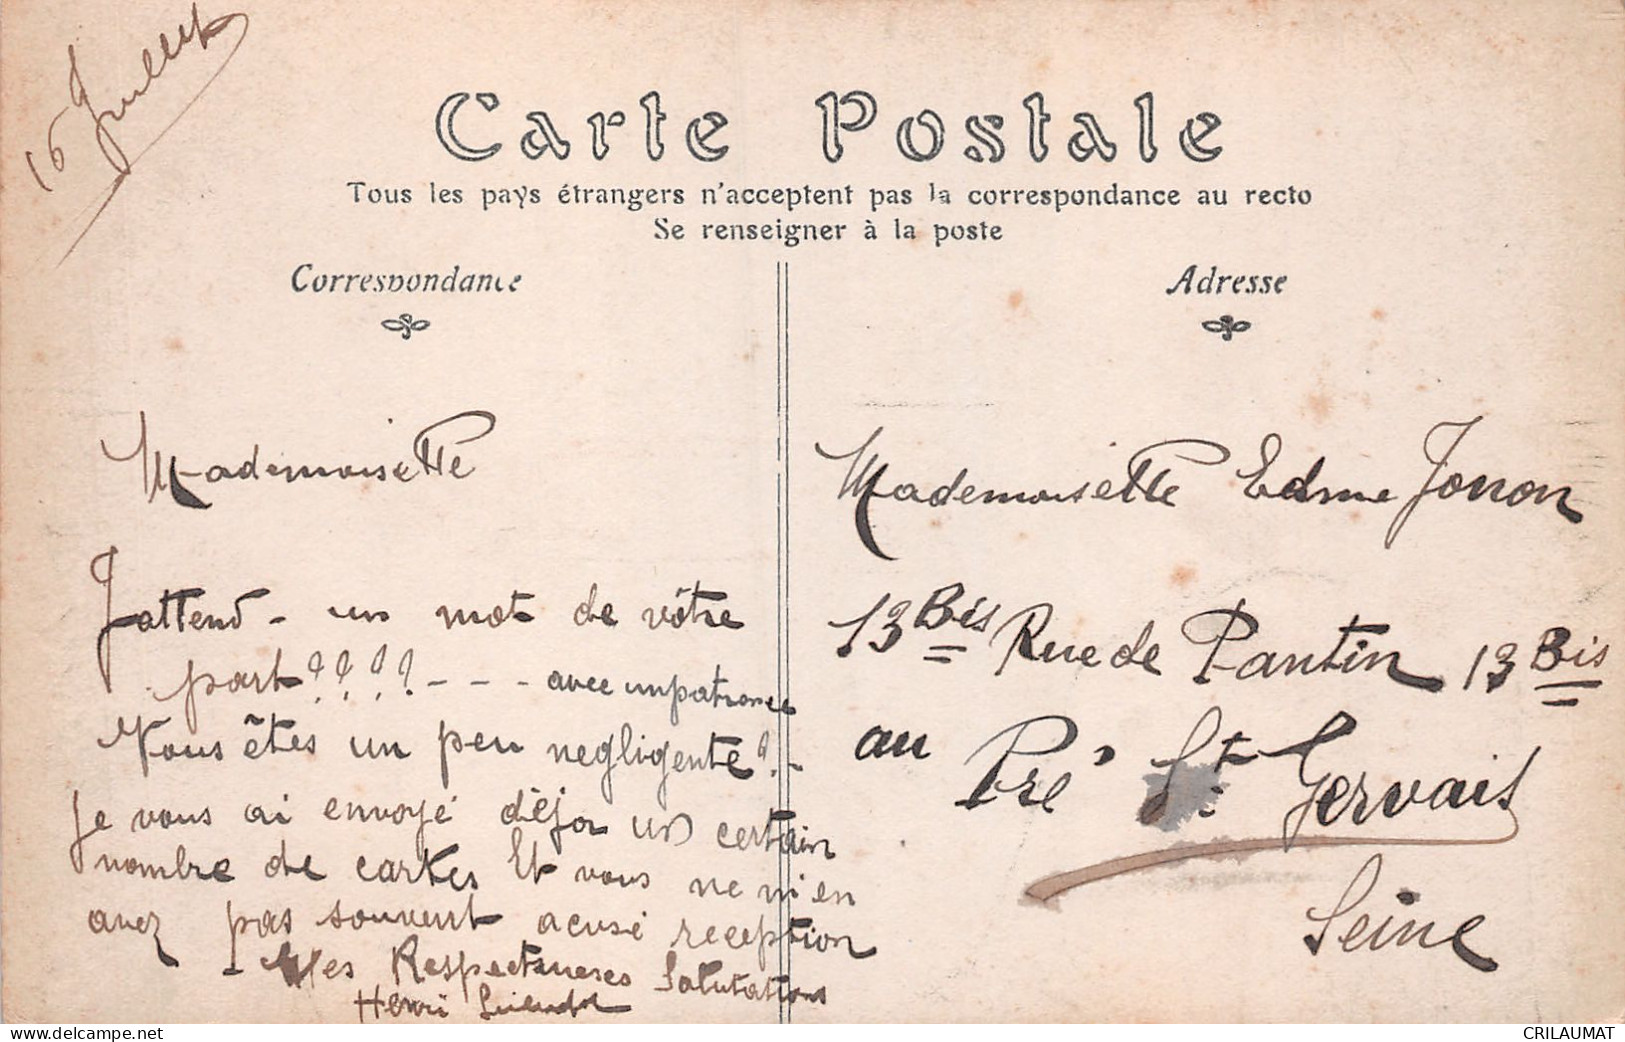 16 Juillet
Carte Postale
Tous les pays étrangers n'acceptent pas la correspondance au recto
Se renseigner à la poste
Correspondance
Adresse
Mademoiselle
J'attend - un mot de vôtre
part???? - - - avec impatience
Vous êtes un peu negligente? -
Je vous ai envoyé déja un certain
nombre de cartes Et vous ne m'en
avez pas souvent acusé reception
- Mes Respectueuses Salutations
Henri
Mademoiselle Edme Jonon
13 Bis Rue de Pantin 13 Bis
au Pré St Gervais
Seine
www.delcampe.net
CRILAUMAT